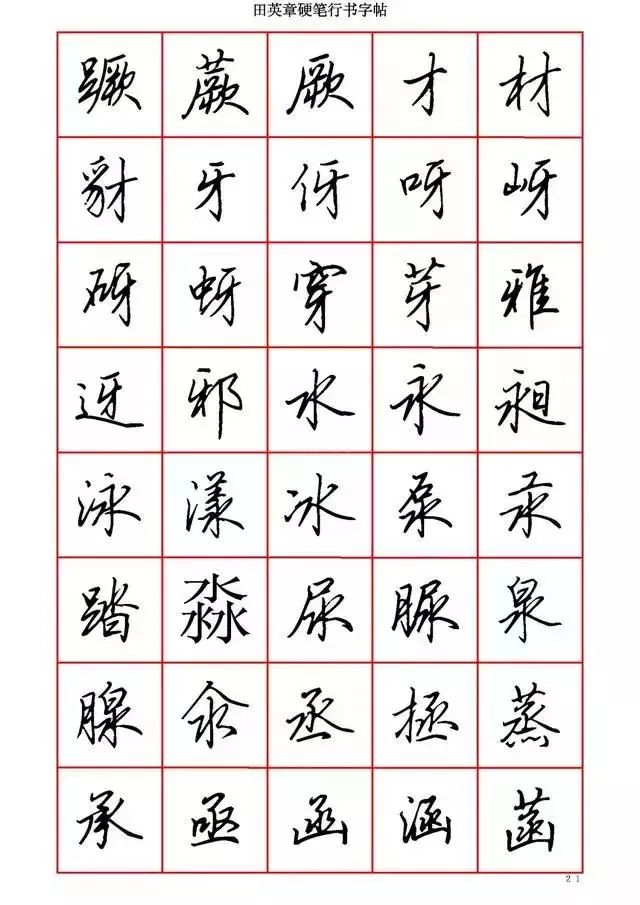 田英章硬笔行书字帖
蹶 蕨 厥 才 材
豺 牙 伢 呀 岈
砑 蚜 穿 芽 雅
迓 邪 水 永 昶
泳 漾 冰 泵 汞
踏 淼 尿 脲 泉
腺 汆 丞 拯 蒸
承 亟 函 涵 菡
21